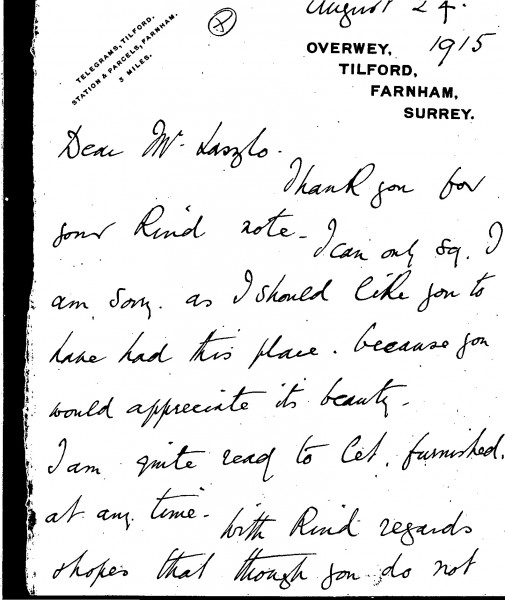 August 24.
1915
TELEGRAMS, TILFORD.
STATION & PARCELS, FARNHAM.
3 MILES.
OVERWEY,
TILFORD,
FARNHAM,
SURREY.
Dear Mr. Laszlo.
Thank you for
your kind note - I can only say. I
am sorry. as I should like you to
have had this place. because you
would appreciate its beauty -
I am quite ready to let. furnished.
at any time. - With kind regards
& hopes that though you do not